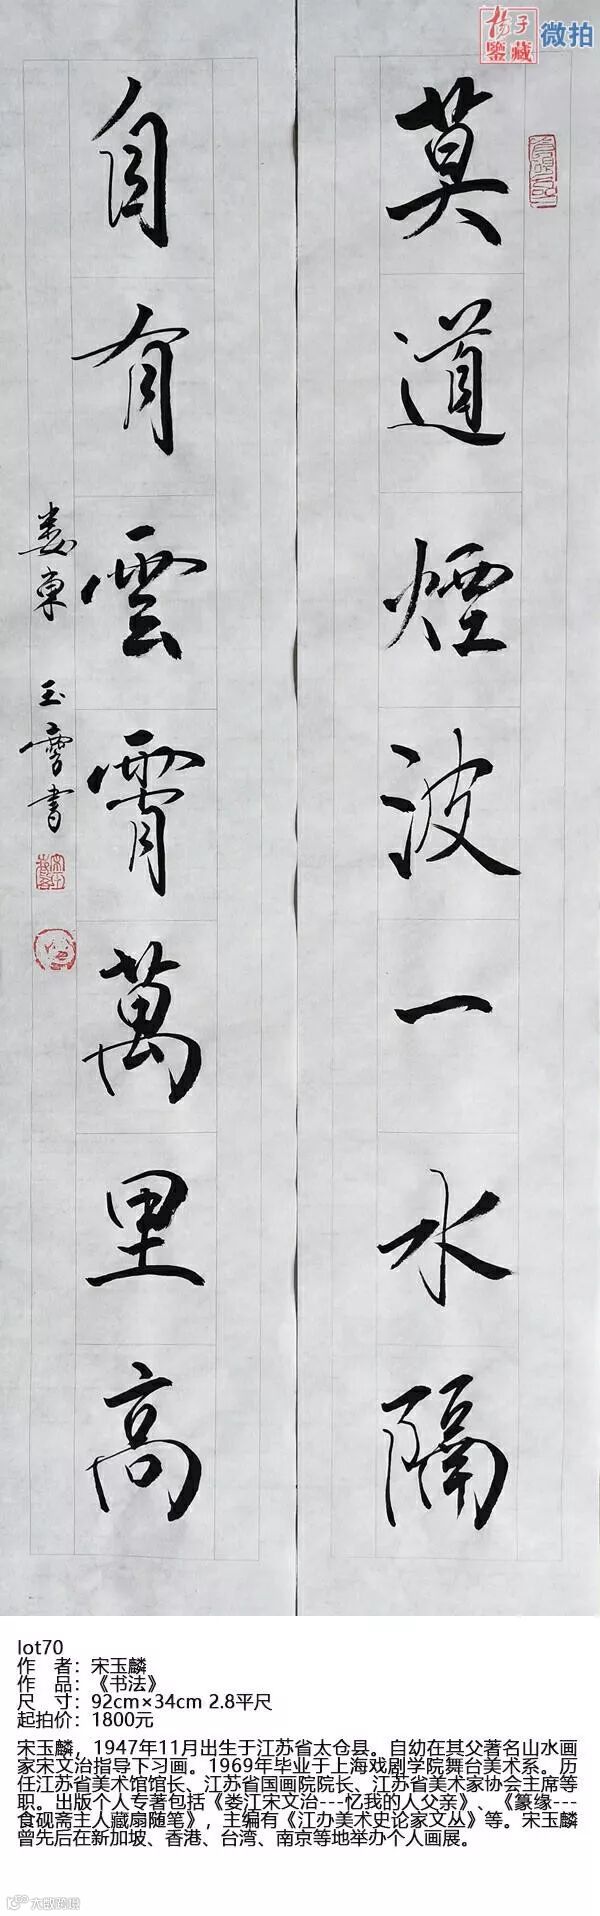 揚子
鑒藏
微拍
莫道煙波一水隔
自有雲霄萬里高
婁東 玉麐書
lot70
作 者：宋玉麟
作 品：《书法》
尺 寸：92cm×34cm 2.8平尺
起拍价：1800元
宋玉麟，1947年11月出生于江苏省太仓县。自幼在其父著名山水画
家宋文治指导下习画。1969年毕业于上海戏剧学院舞台美术系。历
任江苏省美术馆馆长、江苏省国画院院长、江苏省美术家协会主席等
职。出版个人专著包括《娄江宋文治---忆我的人父亲》、《篆缘---
食砚斋主人藏扇随笔》，主编有《江办美术史论家文丛》等。宋玉麟
曾先后在新加坡、香港、台湾、南京等地举办个人画展。
大数跨境